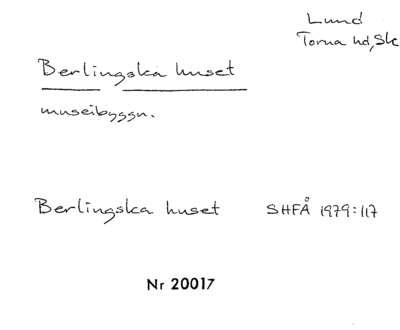 Lund
Torna hd, Sk
Berlingska huset
museibyggn.
Berlingska huset SHFÅ 1979:117
Nr 20017